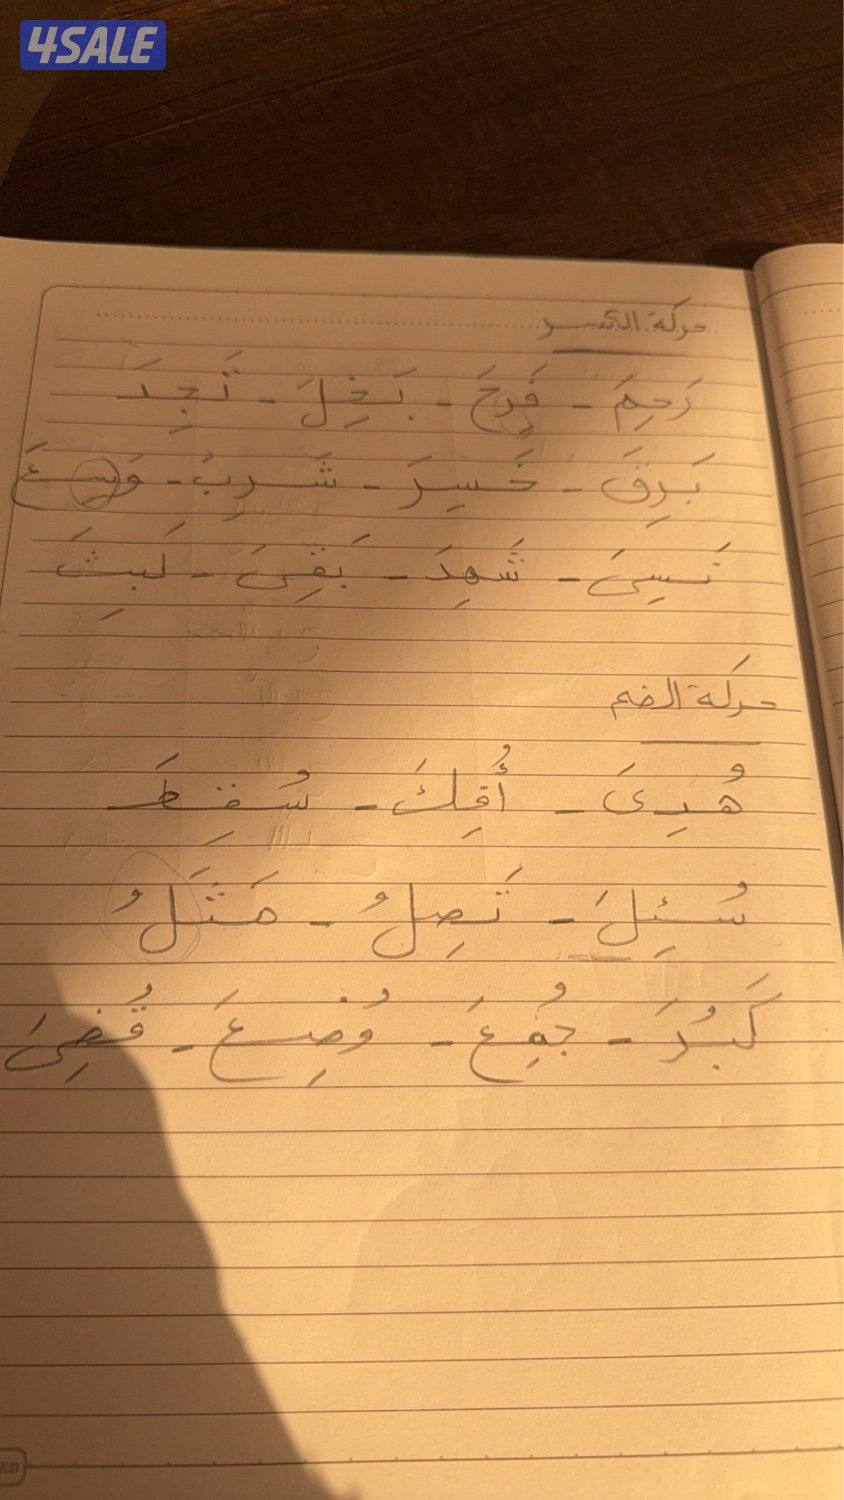 4SALE
حركة الكسر
رَحِمَ - فَرِحَ - بَخِلَ - تَجِدَ
بَرِقَ - خَسِرَ - شَرِبُ - وَسِعَ
نَسِىَ - شَهِدَ - بَقِىَ - لَبِثَ
حركَة الضم
هُدِىَ - أُفِكَ - سُقِطَ
سُئِلَ - تَصِلُ - مَثَلُ
كَبُرَ - جُمِعَ - وُضِعَ - قُضِىَ